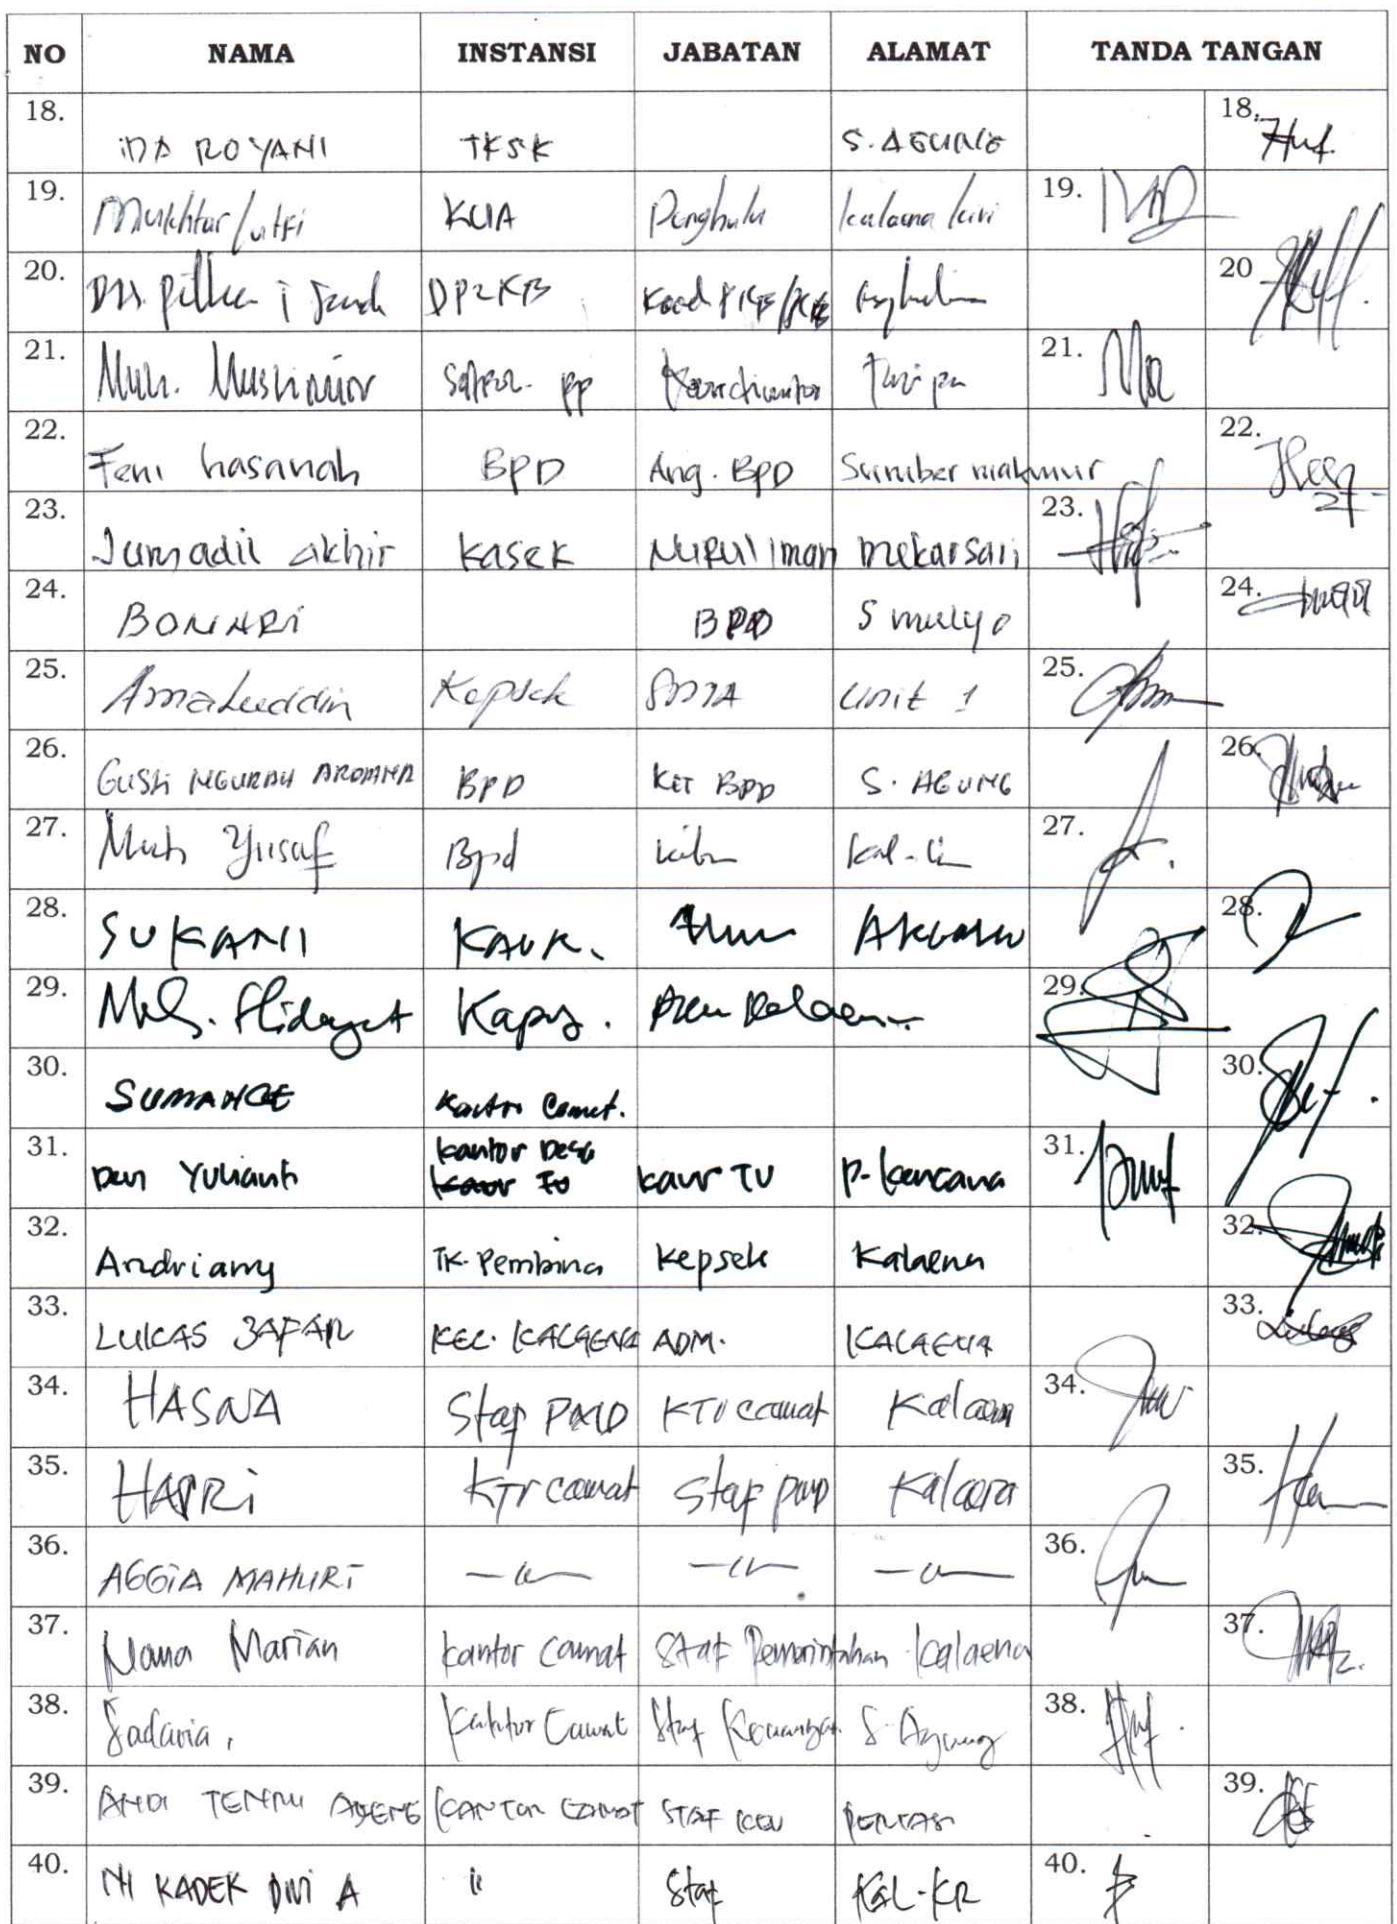 NO NAMA INSTANSI JABATAN ALAMAT TANDA TANGAN
18. IDA ROYANI TKSK S. AGUNG 18.
19. Mukhtar Lutfi KUA Penghulu kalaena kiri 19.
20. DP2KB 20
21. Muh. Muslimin Satpol. PP 21.
22. Feni hasanah BPD Ang. BPD Sumber makmur 22.
23. Jumadil akhir Kasek Nurul iman mekarsari 23.
24. BONARI BPD S mulyo 24.
25. Amaluddin Kepsek SMA Unit 1 25.
26. GUSTI NGURAH ARDANA BPD KET BPD S. AGUNG 26.
27. Muh Yusuf Bpd 27.
28. SUKANI KAUR. 28.
29. Muh. Hidayat 29.
30. SUMANGE Camat. 30.
31. Kantor Desa
Yulianti Kaur TU P. kencana 31.
32. Andriany TK. Pembina Kepsek Kalaena 32.
33. LUKAS JAFAR KEC. KALAENA ADM. KALAENA 33.
34. HASNA Staf PMD KTR camat Kalaena 34.
35. HAPRI KTR camat Staf pmd Kalaena 35.
36. AGGIA MAHURI —〃— —〃— —〃— 36.
37. Nana Marian Kantor Camat Staf Pemerintahan Kalaena 37.
38. Sadaria, Kantor Camat Staf Keuangan S. Agung 38.
39. ANDI TENRI AJENG KANTOR CAMAT STAF KEU 39.
40. NI KADEK DWI A 〃 Staf KAL-KR 40.